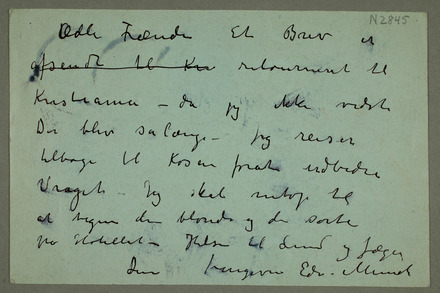 N2845.
Ædle Frænde Et Brev er
afsendt til Kra retourneret til
Kristiania – da jeg ikke vidste
De blev saalænge – jeg reiser
tilbage til Kösen for at udbedre
Vraget. Jeg skal netop til
at tegne den blonde og de sorte
på Hotellet – Hilsen til Lund og Jæger
Din hengivne Edv. Munch